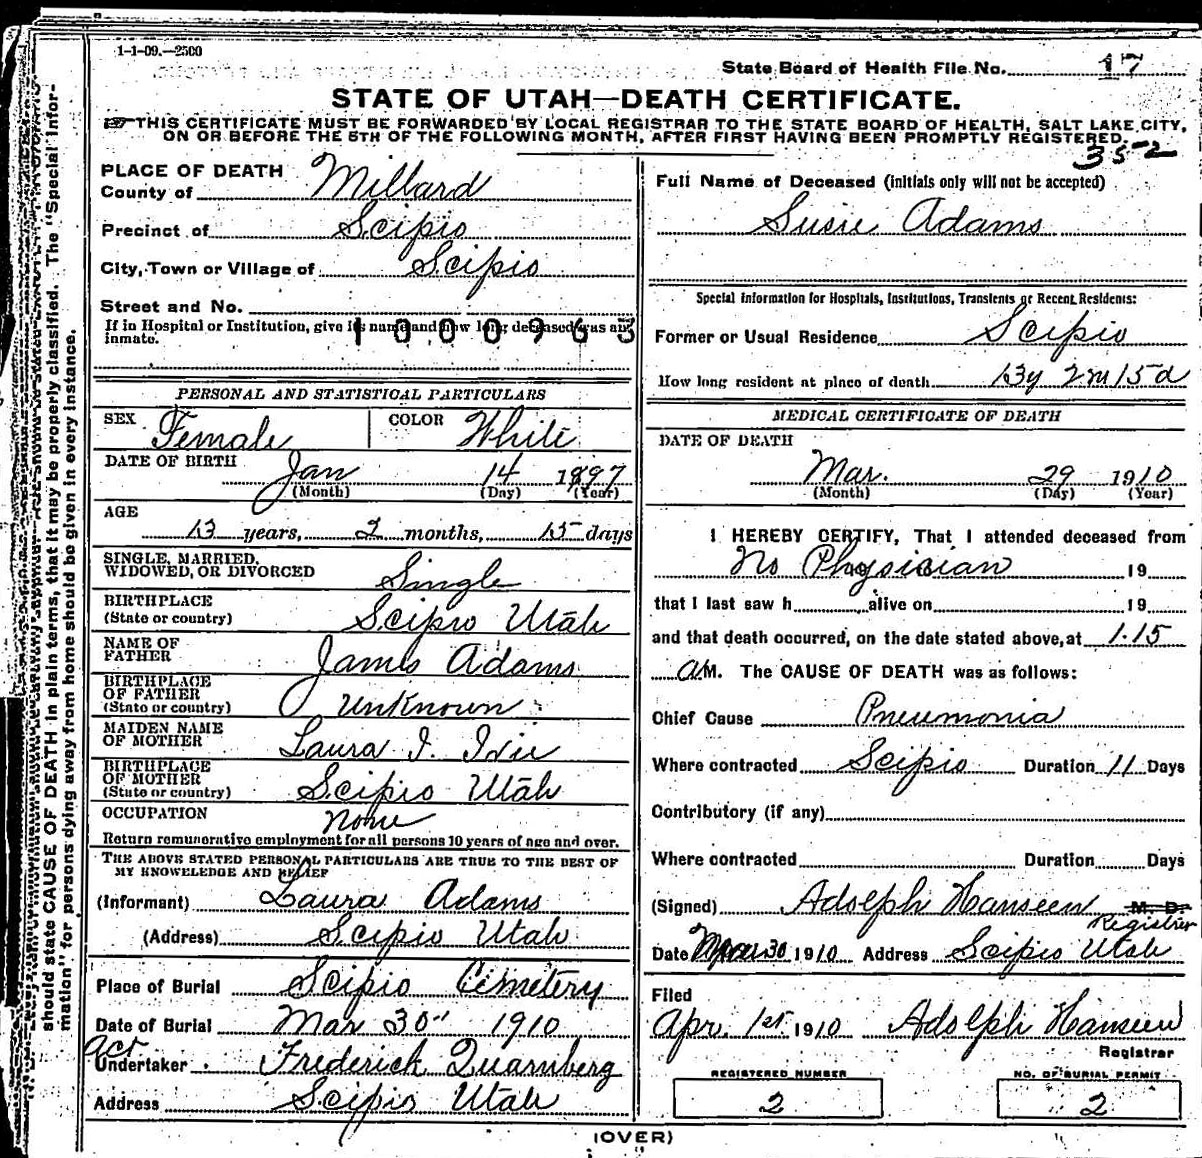 1-1-09.—2500
State Board of Health File No. 17
STATE OF UTAH—DEATH CERTIFICATE.
THIS CERTIFICATE MUST BE FORWARDED BY LOCAL REGISTRAR TO THE STATE BOARD OF HEALTH, SALT LAKE CITY,
ON OR BEFORE THE 5TH OF THE FOLLOWING MONTH, AFTER FIRST HAVING BEEN PROMPTLY REGISTERED.
352
should state CAUSE OF DEATH in plain terms, that it may be properly classified. The "Special Infor-
mation" for persons dying away from home should be given in every instance.
PLACE OF DEATH
County of Millard
Precinct of Scipio
City, Town or Village of Scipio
Street and No.
If in Hospital or Institution, give its name and how long deceased was an
inmate.
1000963
PERSONAL AND STATISTICAL PARTICULARS
SEX Female COLOR White
DATE OF BIRTH Jan 14 1897
(Month) (Day) (Year)
AGE
13 years, 2 months, 15 days
SINGLE, MARRIED,
WIDOWED, OR DIVORCED Single
BIRTHPLACE
(State or country) Scipio Utah
NAME OF
FATHER James Adams
BIRTHPLACE
OF FATHER
(State or country) Unknown
MAIDEN NAME
OF MOTHER Laura I. Ivie
BIRTHPLACE
OF MOTHER
(State or country) Scipio Utah
OCCUPATION None
Return remunerative employment for all persons 10 years of age and over.
THE ABOVE STATED PERSONAL PARTICULARS ARE TRUE TO THE BEST OF
MY KNOWELEDGE AND BELIEF
(Informant) Laura Adams
(Address) Scipio Utah
Place of Burial Scipio Cemetery
Date of Burial Mar 30" 1910
act
Undertaker Frederick Quarnberg
Address Scipio Utah
Full Name of Deceased (initials only will not be accepted)
Susie Adams
Special Information for Hospitals, Institutions, Transients or Recent Residents:
Former or Usual Residence Scipio
How long resident at place of death 13y 2m 15d
MEDICAL CERTIFICATE OF DEATH
DATE OF DEATH
Mar. 29 1910
(Month) (Day) (Year)
I HEREBY CERTIFY, That I attended deceased from
No Physician 19
that I last saw h alive on 19
and that death occurred, on the date stated above, at 1.15
a M. The CAUSE OF DEATH was as follows:
Chief Cause Pneumonia
Where contracted Scipio Duration 11 Days
Contributory (if any)
Where contracted Duration Days
(Signed) Adolph Hanseen M. D.
Registrar
Date Mar 30 1910 Address Scipio Utah
Filed
Apr. 1st 1910 Adolph Hanseen
Registrar
REGISTERED NUMBER
2
NO. OF BURIAL PERMIT
2
(OVER)